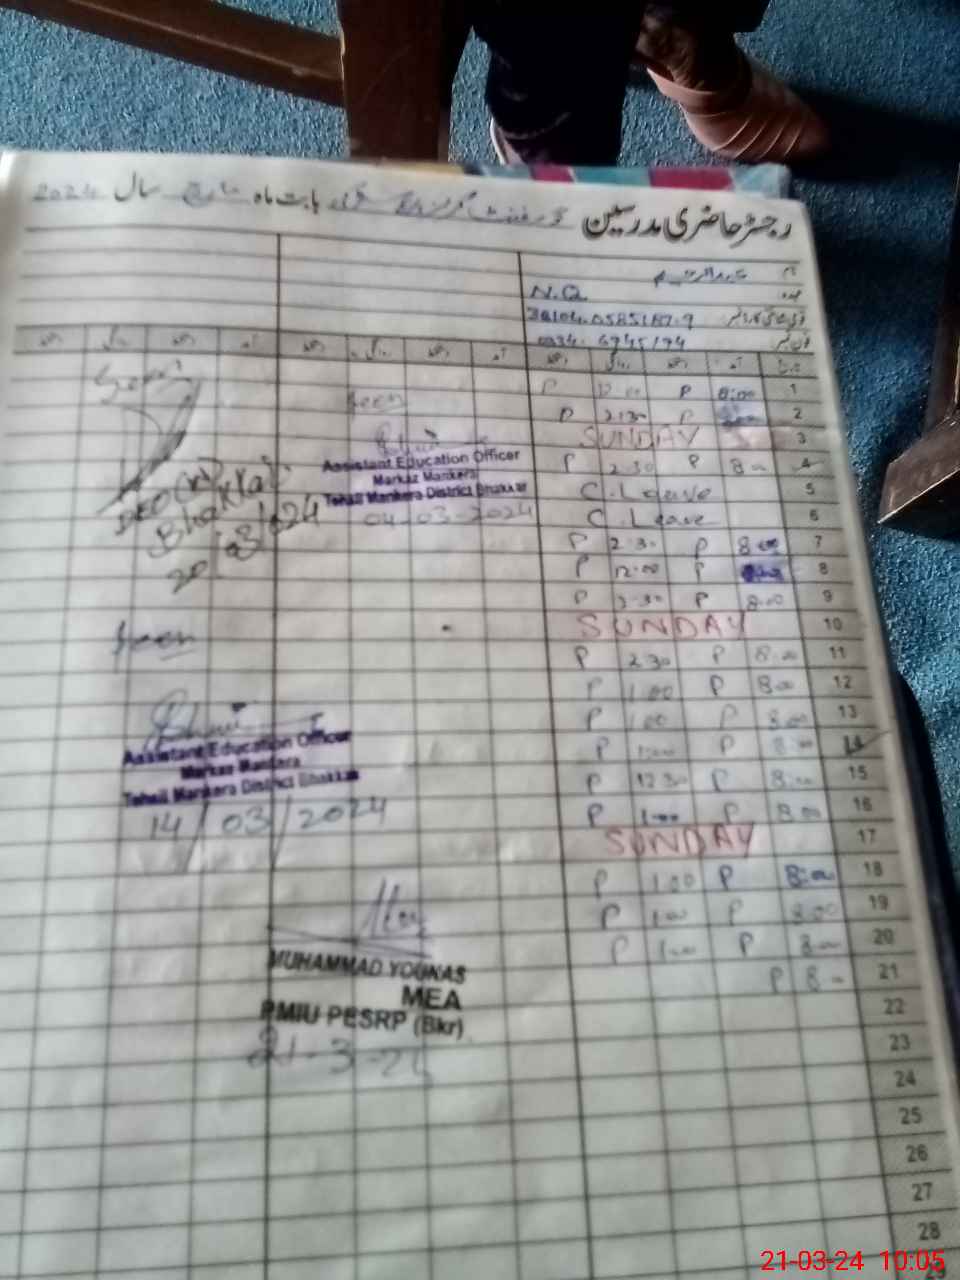 رجسٹر حاضری مدرسین گورنمنٹ گرلز بابت ماہ مارچ سال 2024
نام
عہدہ N.Q
فون نمبر 0334. 6745174
1 8:00 P 12:00 P
2 P 2:30 P
3 SUNDAY
4 8:00 P 2:30 P
5 C. Leave
6 C. Leave
7 8:00 P 2:30 P
8 P 12:00 P
9 8:00 P 2:30 P
10 SUNDAY
11 8:00 P 2:30 P
12 8:00 P 1:00 P
13 8:00 P 1:00 P
14 8:00 P 1:00 P
15 8:00 P 12:30 P
16 8:00 P 1:00 P
17 SUNDAY
18 8:00 P 1:00 P
19 8:00 P 1:00 P
20 8:00 P 1:00 P
21 8:00 P
22
23
24
25
26
27
28
29
Seen
Assistant Education Officer
Markaz Mankera
Tehsil Mankera District Bhakkar
04-03-2024
Seen
Bhakkar
20/03/024
Seen
Assistant Education Officer
Markaz Mankera
Tehsil Mankera District Bhakkar
14/03/2024
MUHAMMAD YOUNAS
MEA
PMIU PESRP (Bkr)
21-3-24
21-03-24 10:05